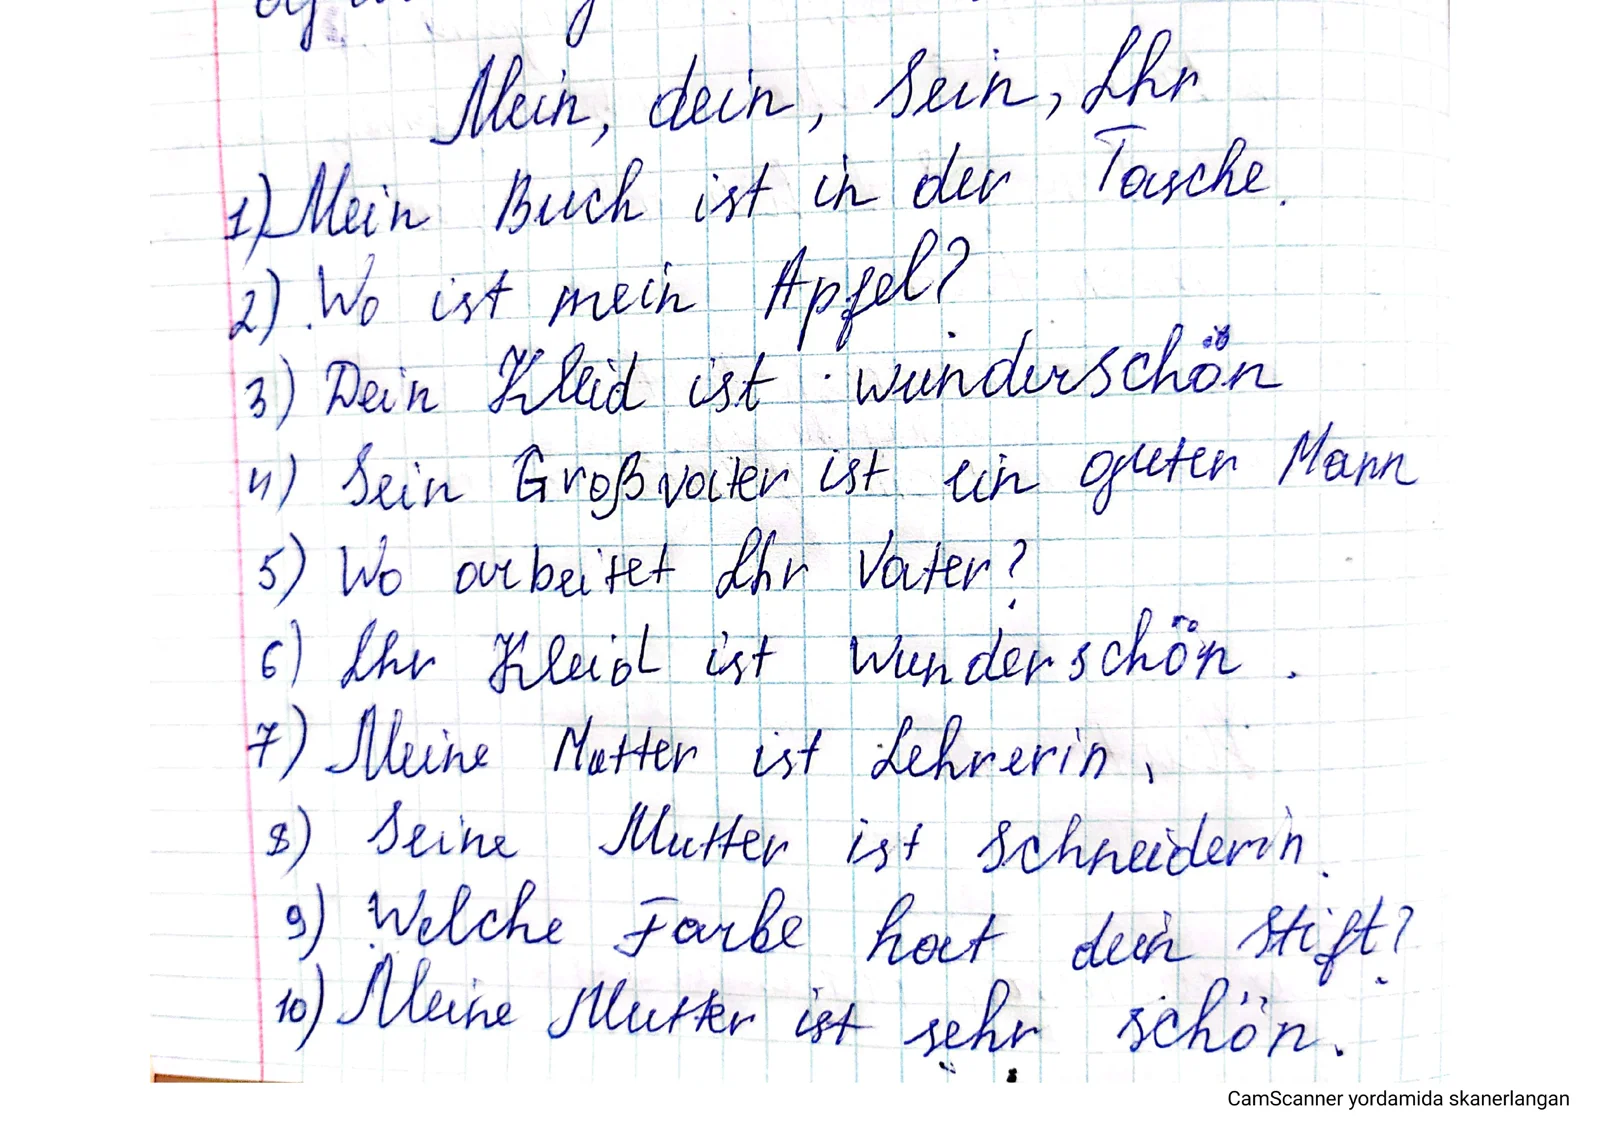 Mein, dein, Sein, Ihr
1) Mein Buch ist in der Tasche.
2) Wo ist mein Apfel?
3) Dein Kleid ist wunderschön
4) Sein Großvater ist ein guter Mann
5) Wo arbeitet Ihr Vater?
6) Ihr Kleid ist wunderschön.
7) Meine Mutter ist Lehrerin.
8) Seine Mutter ist Schneiderin.
9) Welche Farbe hat dein Stift?
10) Meine Mutter ist sehr schön.
CamScanner yordamida skanerlangan